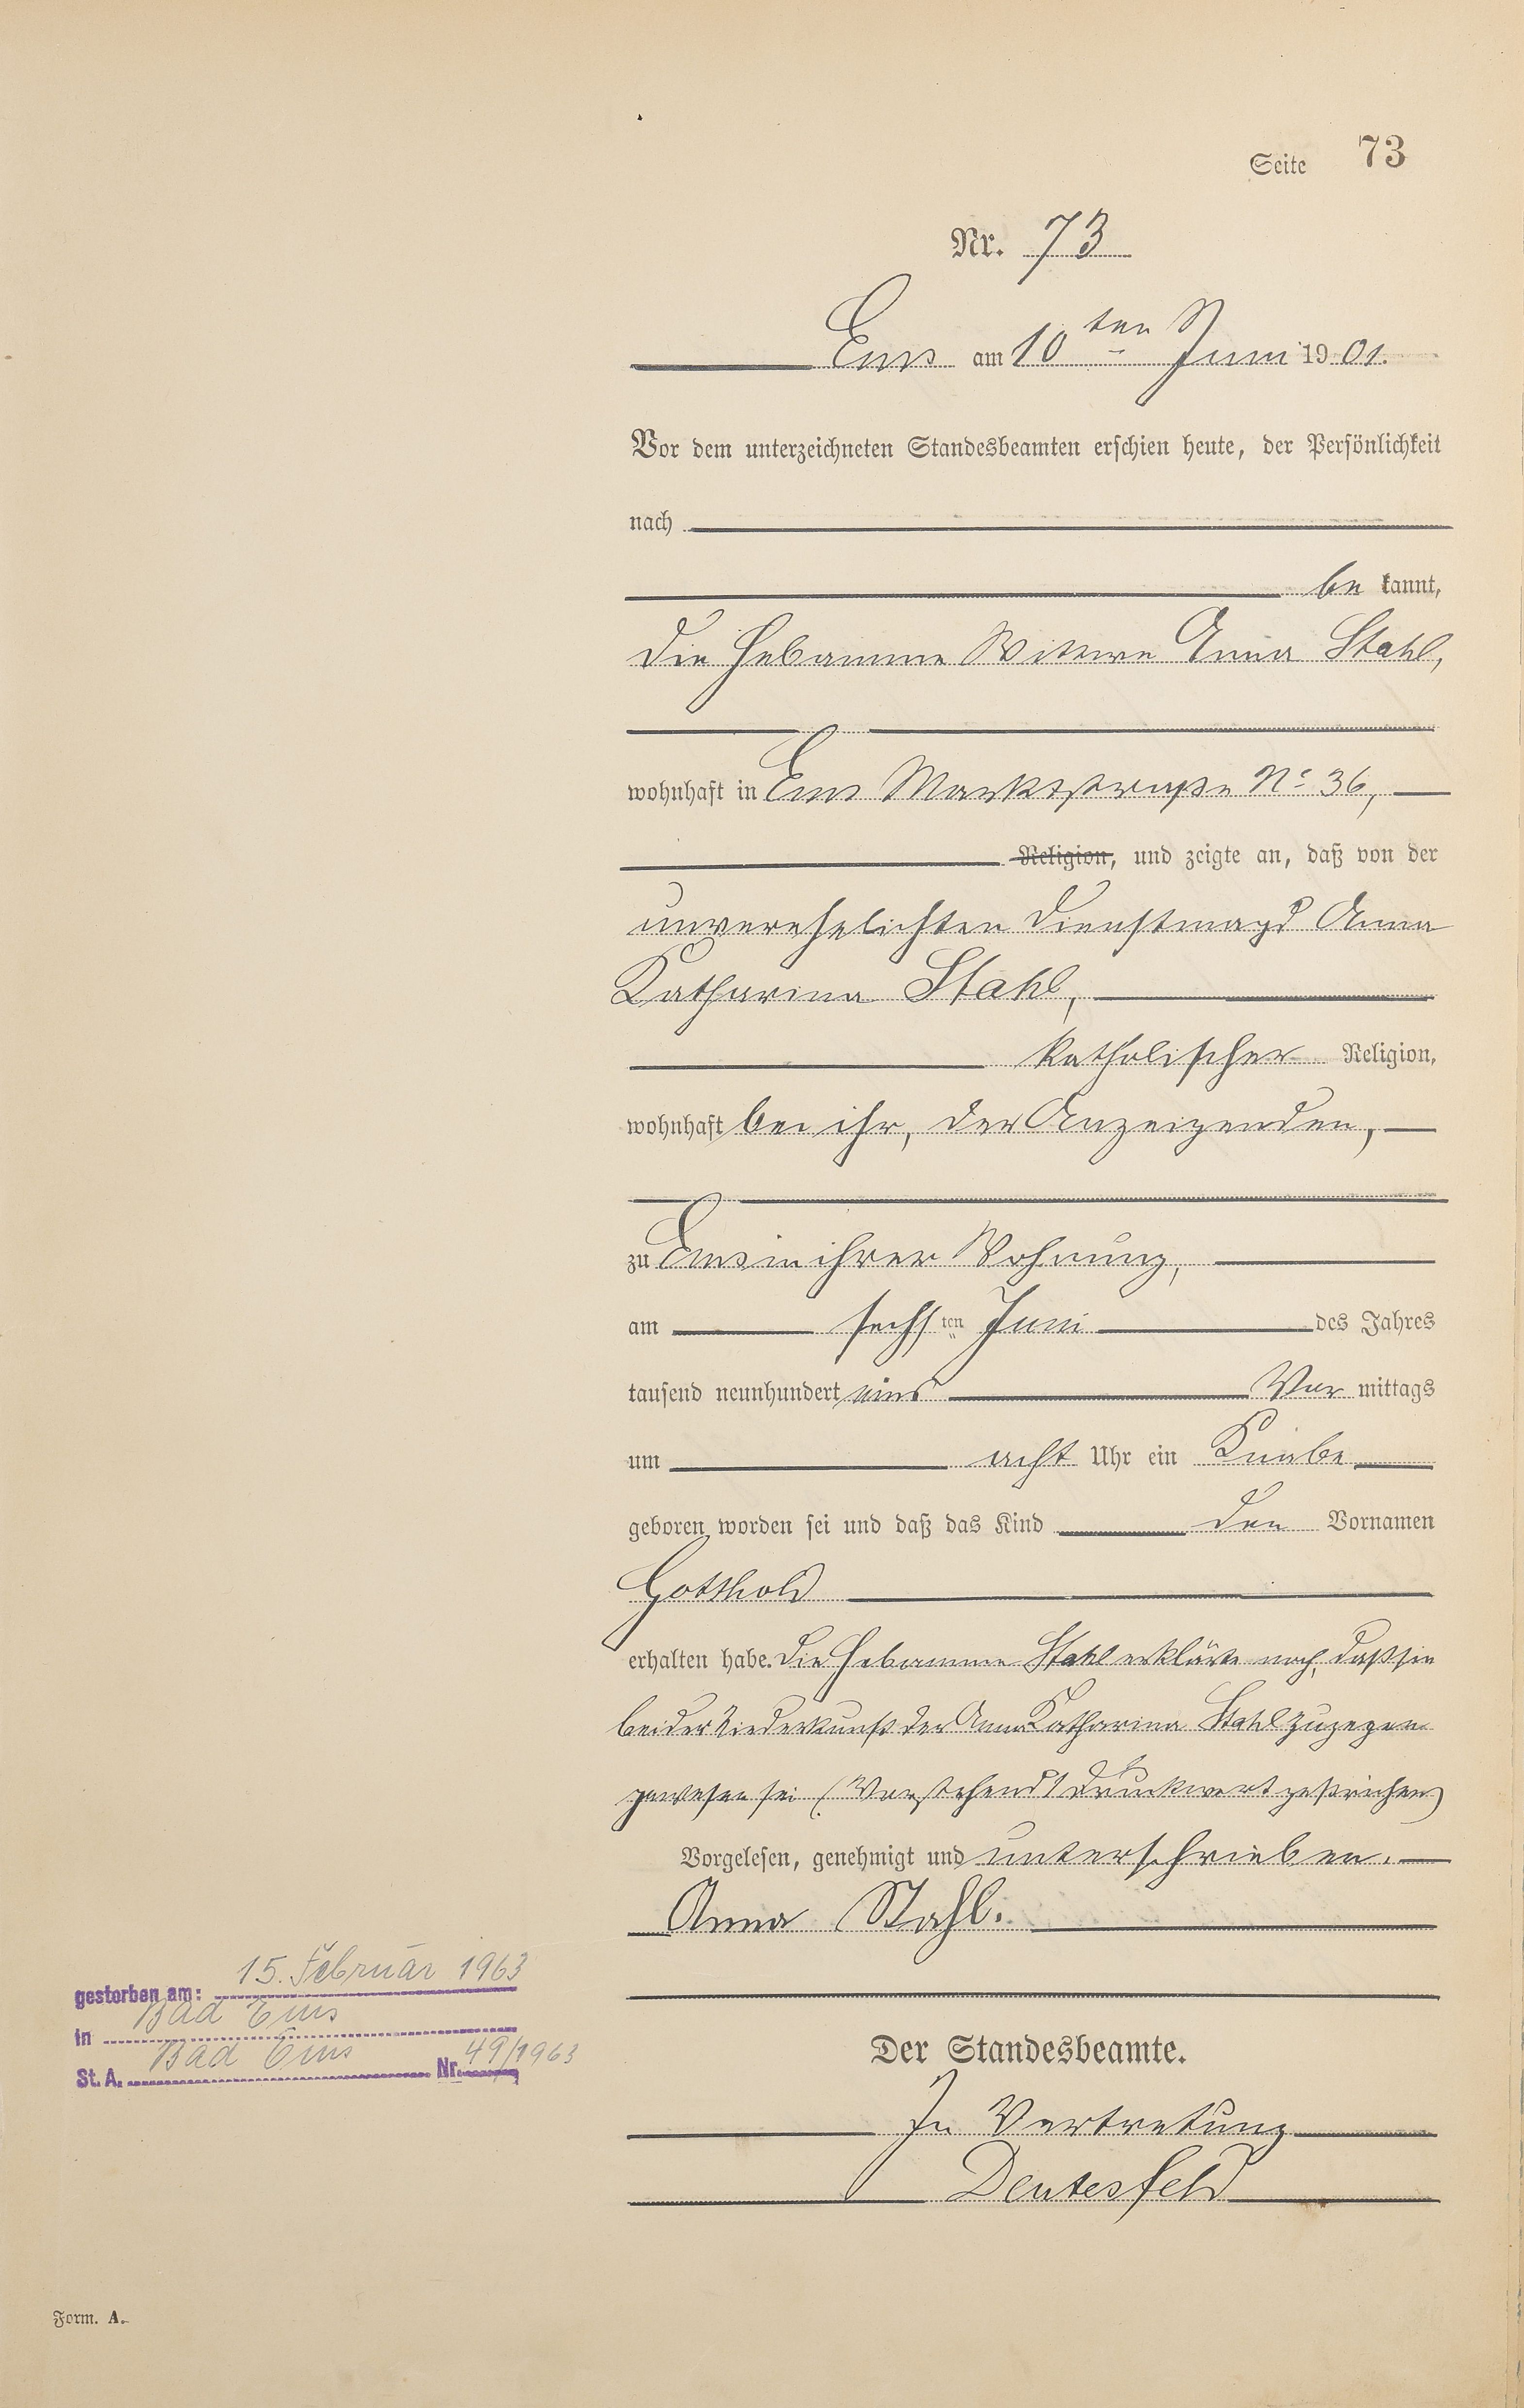 Seite 73
Nr. 73
Ems am 10ten Juni 1901.
Vor dem unterzeichneten Standesbeamten erschien heute, der Persönlichkeit
nach
bekannt,
die Hebamme Wittwe Anna Stahl,
wohnhaft in Ems Marktstraße No 36,
Religion, und zeigte an, daß von der
unverehelichten Dienstmagd Anna
Katharina Stahl,
katholischer Religion,
wohnhaft bei ihr, der Anzeigenden,
zu Ems in ihrer Wohnung,
am sechsten Juni des Jahres
tausend neunhundert eins Vor mittags
um acht Uhr ein Knabe
geboren worden sei und daß das Kind den Vornamen
Gotthold
erhalten habe. Die Hebamme Stahl erklärte noch, daß sie
bei der Niederkunft der Anna Katharina Stahl zugegen
gewesen sei (Vorstehend 1 Druckwort gestrichen)
Vorgelesen, genehmigt und unterschrieben.
Anna Stahl.
Der Standesbeamte.
In Vertretung
Deutesfeld
gestorben am: 15. Februar 1963
in Bad Ems
St. A. Bad Ems Nr. 49/1963
Form. A.